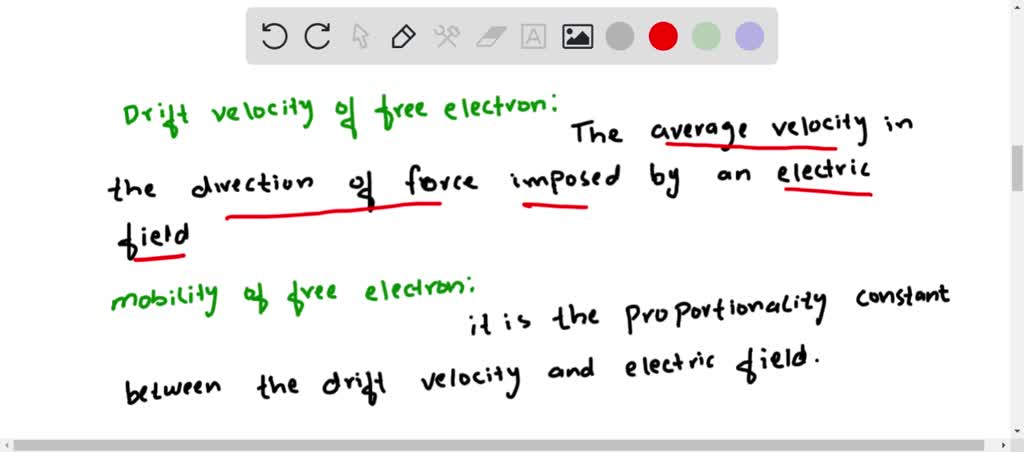 Drift velocity of free electron:
The average velocity in
the direction of force imposed by an electric
field
mobility of free electron:
it is the proportionality constant
between the drift velocity and electric field.